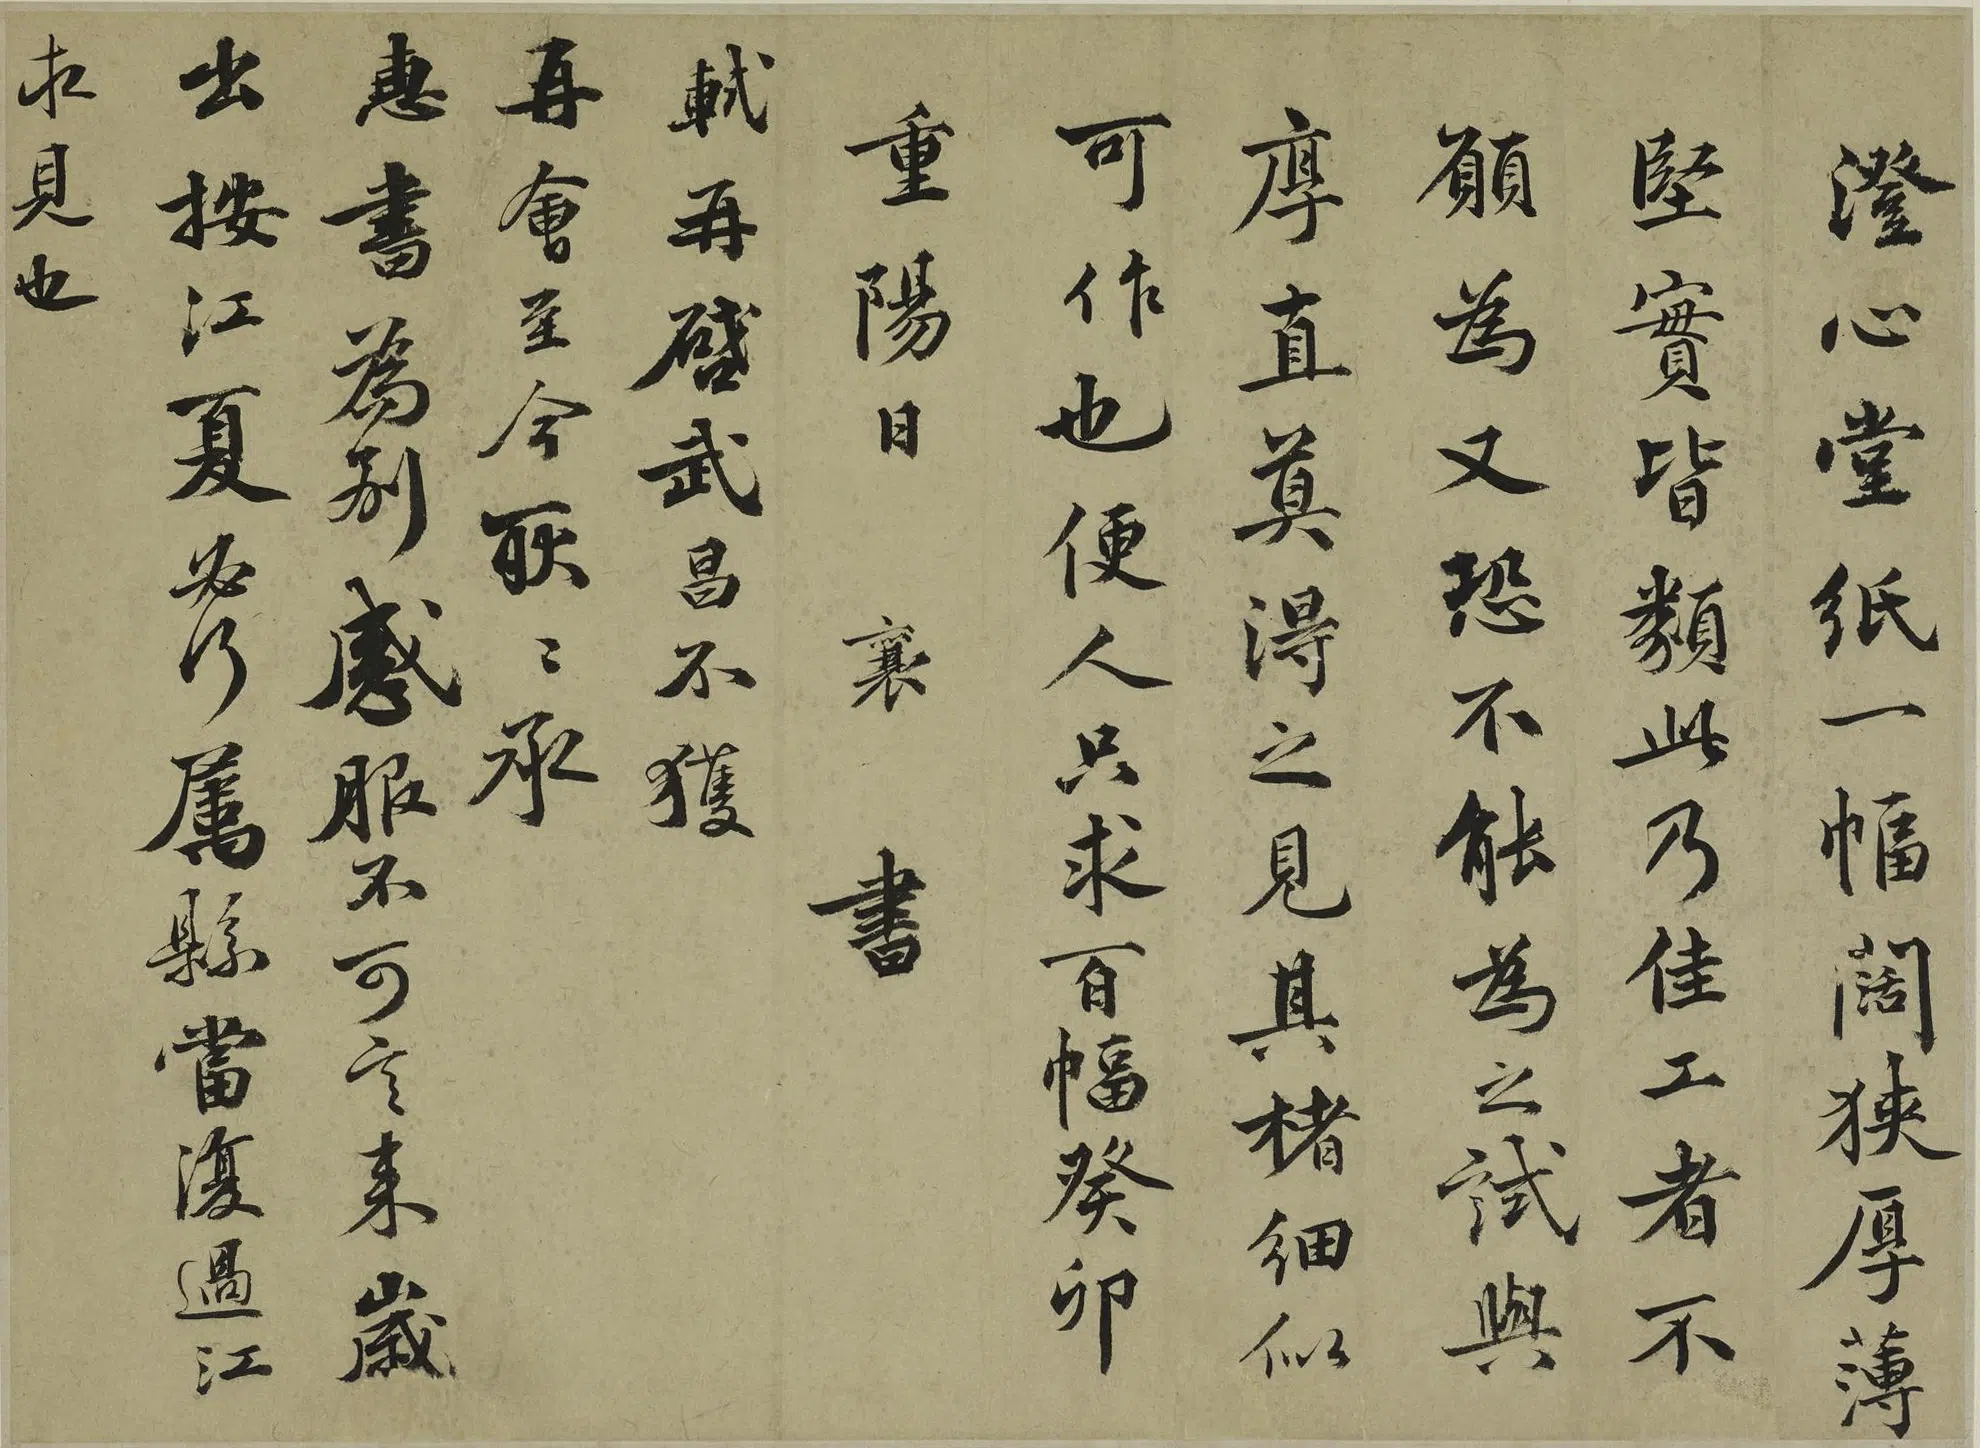 澄心堂紙一幅闊狹厚薄
堅實皆類此乃佳工者不
願為又恐不能為之試與
厚直莫得之見其楮細似
可作也便人只求百幅癸卯
重陽日襄書
軾再啓武昌不獲
再會至今耿〻承
惠書為別感服不可言来歲
出按江夏必行属縣當復過江
求見也